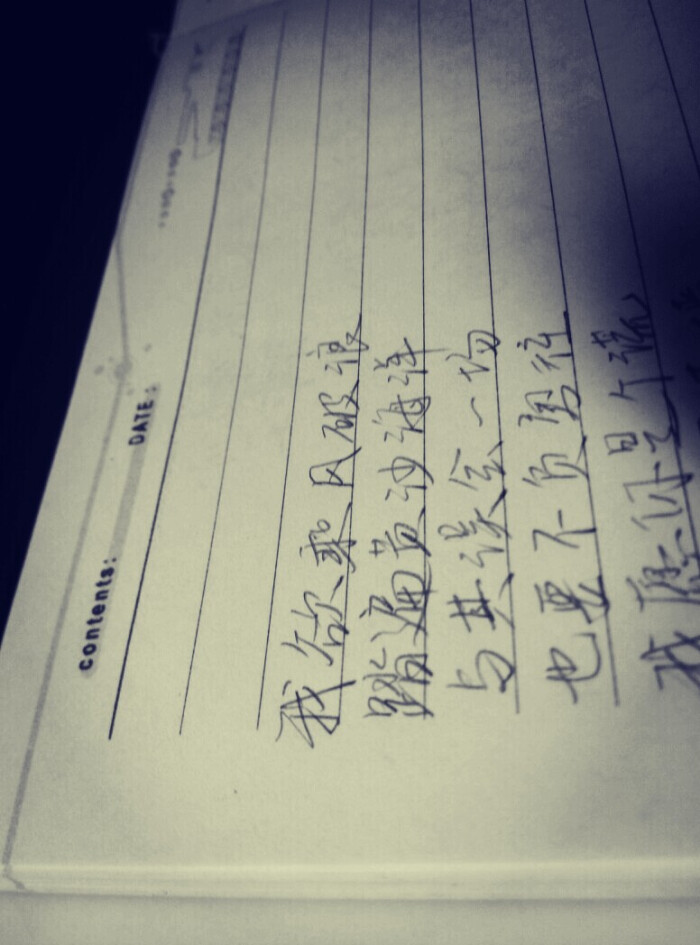 contents: DATE:
我欲乘风破浪
踏遍黄沙海洋
与其误会一场
也要不负勇往
我愿你是个谎